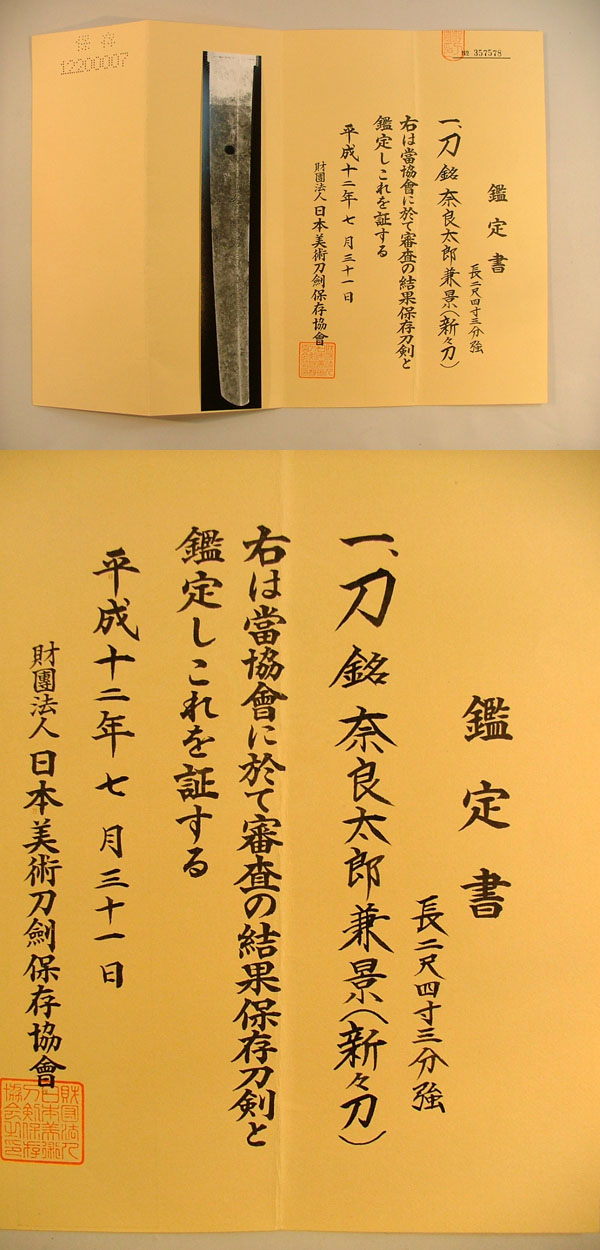 № 357578
鑑定書
長二尺四寸三分強
一、刀 銘 奈良太郎兼景(新々刀)
右は當協會に於て審査の結果保存刀剣と
鑑定しこれを証する
平成十二年七月三十一日
財團法人日本美術刀劍保存協會
保存
12200007
鑑定書
長二尺四寸三分強
一、刀 銘 奈良太郎兼景(新々刀)
右は當協會に於て審査の結果保存刀剣と
鑑定しこれを証する
平成十二年七月三十一日
財團法人日本美術刀劍保存協會
財団法人
日本美術
刀剣保存
協会之印